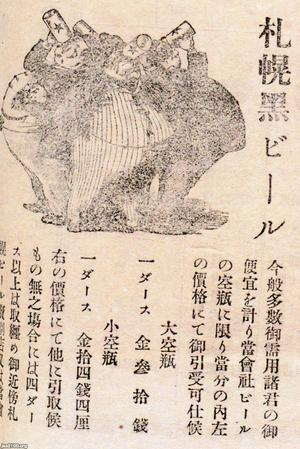 札幌黒ビール
今般多数御需用諸君の御
便宜を計り當會社ビール
の空瓶に限り當分の内左
の價格にて御引受可仕候
大空瓶
一ダース 金参拾錢
小空瓶
一ダース 金拾四錢四厘
右の價格にて他に引取候
もの無之場合には四ダー
ス以上は取纒め御近傍札
jaa2100.org